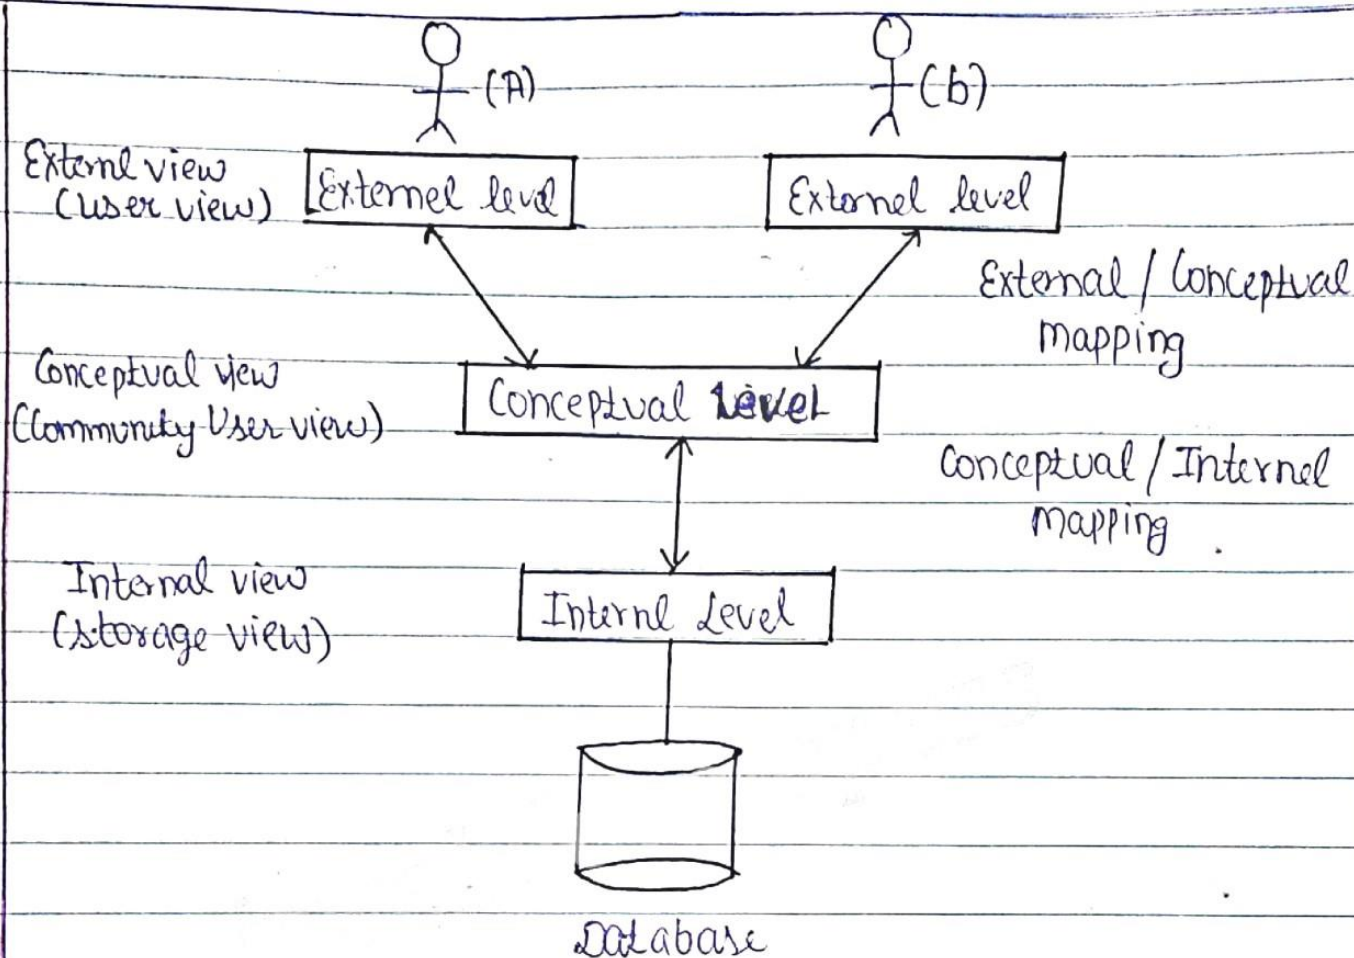 (A)
(b)
Externl view
(user view)
Externel level
Externel level
External / Conceptual
mapping
Conceptual view
(Community User view)
Conceptual Level
Conceptual / Internel
mapping
Internal view
(storage view)
Internl Level
Database